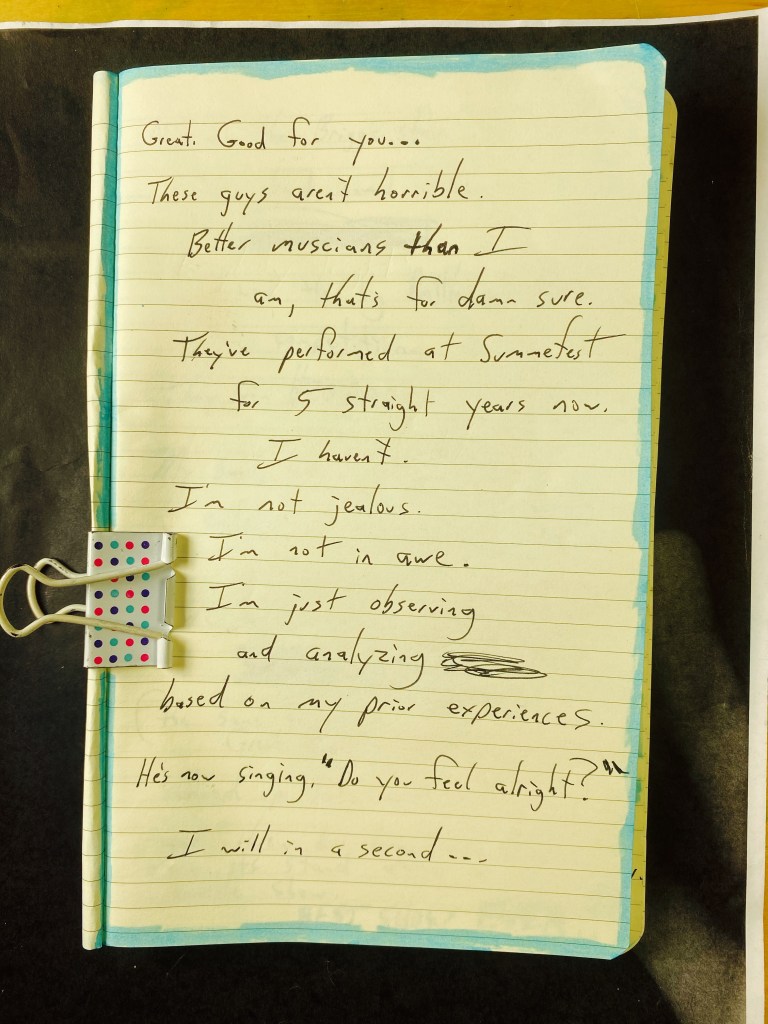 Great. Good for you...
These guys aren't horrible.
Better muscians than I
am, that's for damn sure.
They've performed at Summefest
for 5 straight years now.
I haven't.
I'm not jealous.
I'm not in awe.
I'm just observing
and analyzing
based on my prior experiences.
He's now singing, "Do you feel alright?"
I will in a second...